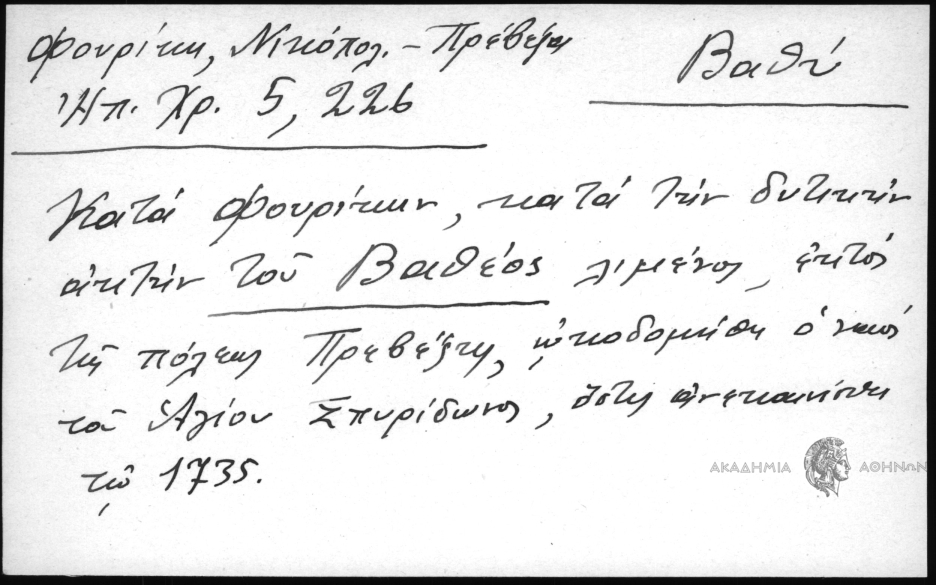 Φουρίκη, Νικόπολ. – Πρέβεζα
Βαθύ
Ἠπ. Χρ. 5, 226
Κατά Φουρίκην, κατά τήν δυτικήν
ἀκτήν τοῦ Βαθέος λιμένος, ἐκτός
τῆς πόλεως Πρεβέζης, ᾠκοδομήθη ὁ ναός
τοῦ Ἁγίου Σπυρίδωνος, ὅστις ἀνεκαινίσθη
τῷ 1735.
ΑΚΑΔΗΜΙΑ ΑΘΗΝΩΝ